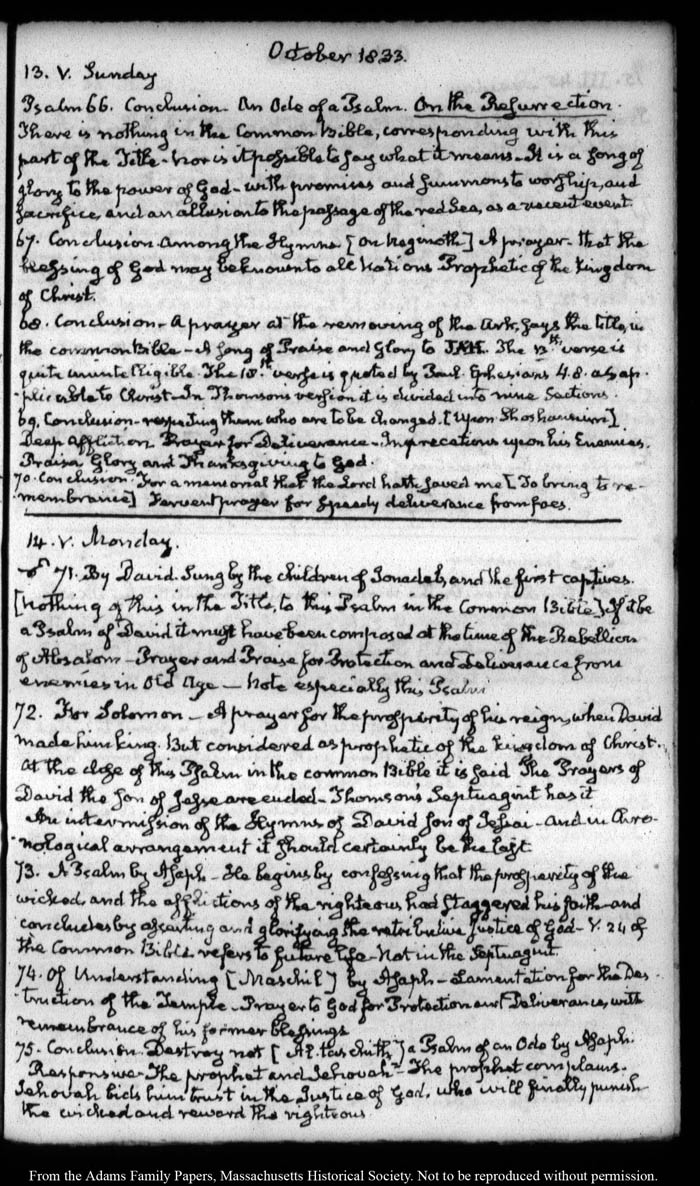 October 1833.
13. V. Sunday
Psalm 66. Conclusion. An Ode of a Psalm. On the Resurrection.
There is nothing in the Common Bible, corresponding with this
part of the Title - Nor is it possible to say what it means - It is a song of
glory to the power of God - with promises and summons to worship, and
sacrifice, and an allusion to the passage of the red Sea, as a recent event.
67. Conclusion. Among the Hymns [on Neginoth] A prayer - that the
blessing of God may be known to all Nations Prophetic of the Kingdom
of Christ.
68. Conclusion - A prayer at the removing of the Ark, says the title, in
the common Bible - A song of Praise and Glory to JAH. The 13th verse is
quite unintelligible. The 18th verse is quoted by Paul. Ephesians 4.8. as ap-
plicable to Christ - In Thomson's version it is divided into nine Sections.
69. Conclusion - respecting them who are to be changed. [upon Shoshannim]
Deep affliction. Prayer for Deliverance - Imprecations upon his Enemies.
Praise Glory and Thanksgiving to God.
70. Conclusion. For a memorial that the Lord hath saved me [To bring to re-
membrance] Fervent prayer for speedy deliverance from foes.
14. V. Monday.
71. By David. Sung by the children of Jonadab, and the first captives.
[Nothing of this in the Title, to this Psalm in the Common Bible] If it be
a Psalm of David it must have been composed at the time of the Rebellion
of Absalom - Prayer and Praise for Protection and Deliverance from
enemies in Old Age - Note especially this Psalm
72. For Solomon - A prayer for the prosperity of his reign, when David
made him king. But considered as prophetic of the kingdom of Christ.
At the close of this Psalm in the common Bible it is said The Prayers of
David the Son of Jesse are ended - Thomson's Septuagint has it
An intermission of the Hymns of David son of Jessai - and in Chro-
nological arrangement it should certainly be the last
73. A Psalm by Asaph - He begins by confessing that the prosperity of the
wicked and the afflictions of the righteous had staggered his faith - and
concludes by asserting and glorifying the retributive justice of God - V. 24 of
the Common Bible refers to future life - Not in the Septuagint.
74. Of Understanding [Maschil] by Asaph - Lamentation for the Des-
truction of the Temple - Prayer to God for Protection and Deliverance, with
remembrance of his former blessings
75. Conclusion. Destroy not [Al-taschith] a Psalm of an Ode by Asaph.
Responsive - The prophet and Jehovah - The prophet complains.
Jehovah bids him trust in the Justice of God, who will finally punish
the wicked and reward the righteous.
From the Adams Family Papers, Massachusetts Historical Society. Not to be reproduced without permission.